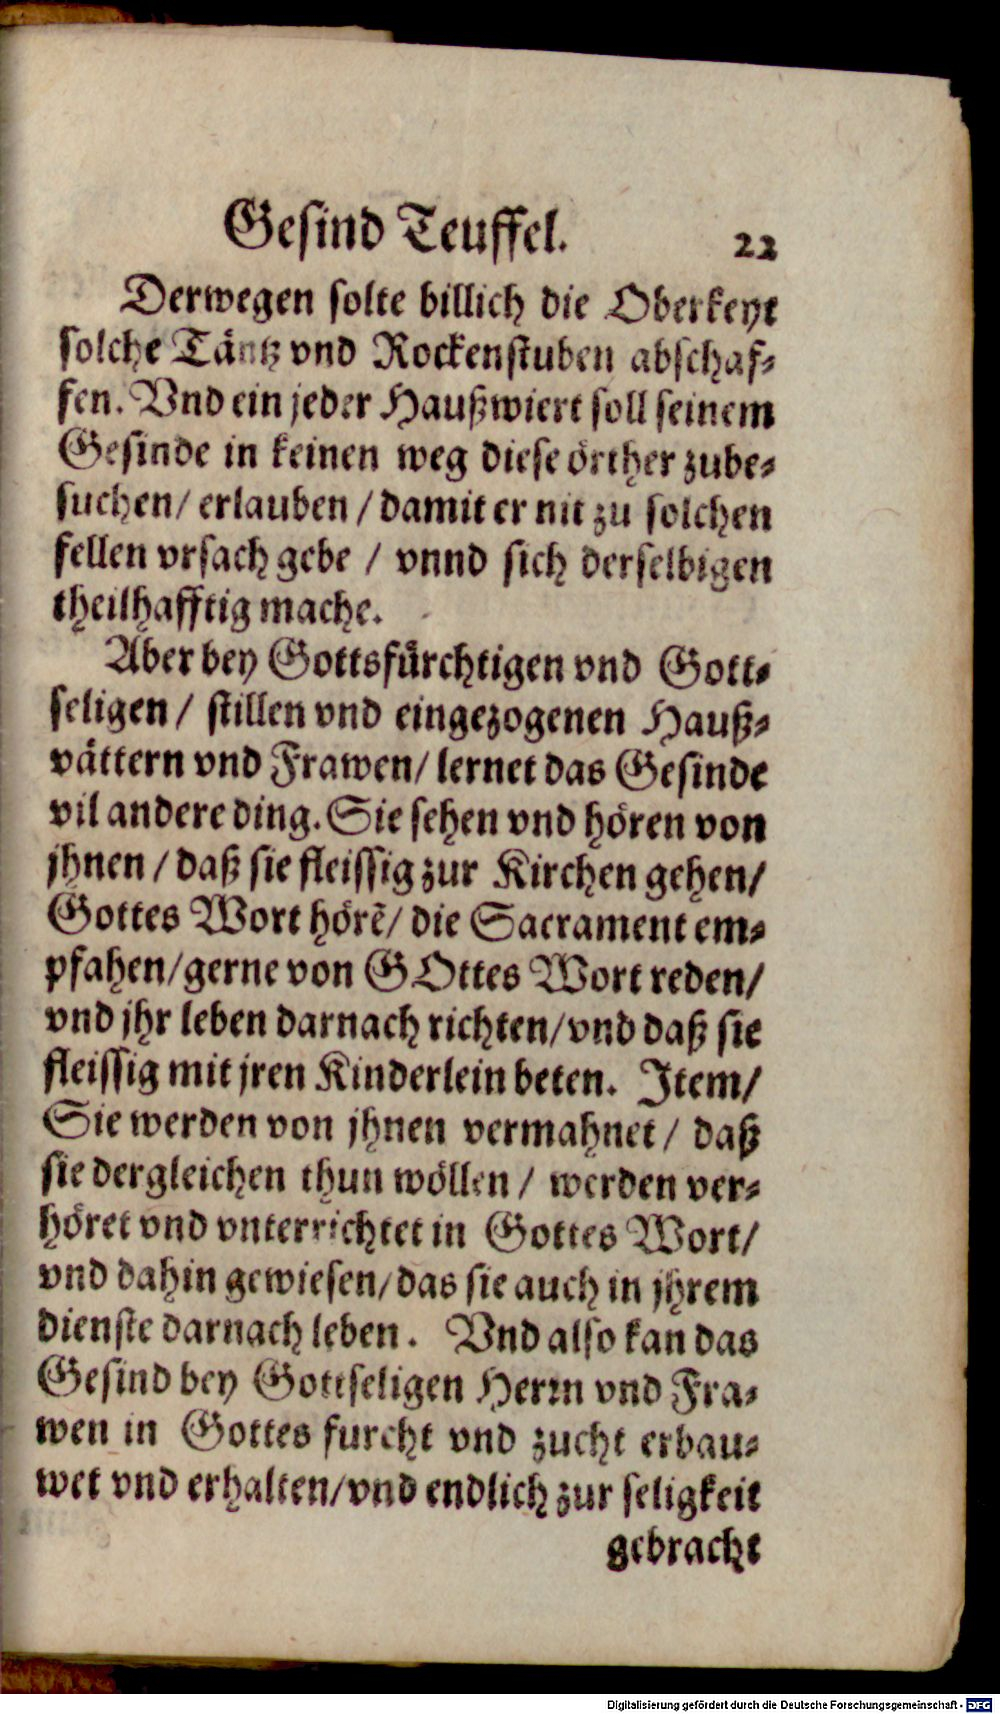 Gesind Teuffel. 22
Derwegen solte billich die Oberkeyt
solche Täntz vnd Rockenstuben abschaf-
fen. Vnd ein jeder Haußwiert soll seinem
Gesinde in keinen weg diese örther zube-
suchen/ erlauben / damit er nit zu solchen
fellen vrsach gebe / vnnd sich derselbigen
theilhafftig mache.
Aber bey Gottsfürchtigen vnd Gott-
seligen / stillen vnd eingezogenen Hauß-
vättern vnd Frawen/ lernet das Gesinde
vil andere ding. Sie sehen vnd hören von
jhnen / daß sie fleissig zur Kirchen gehen/
Gottes Wort hörẽ/ die Sacrament em-
pfahen/gerne von GOttes Wort reden/
vnd jhr leben darnach richten/vnd daß sie
fleissig mit jren Kinderlein beten. Item/
Sie werden von jhnen vermahnet / daß
sie dergleichen thun wöllen / werden ver-
höret vnd vnterrichtet in Gottes Wort/
vnd dahin gewiesen/das sie auch in jhrem
dienste darnach leben. Vnd also kan das
Gesind bey Gottseligen Herrn vnd Fra-
wen in Gottes furcht vnd zucht erbau-
wet vnd erhalten/vnd endlich zur seligkeit
gebracht
Digitalisierung gefördert durch die Deutsche Forschungsgemeinschaft - DFG